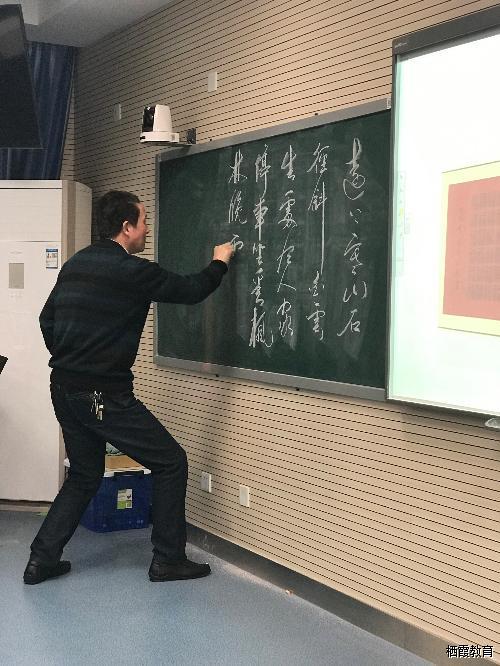 遠上寒山石
徑斜白雲
生處有人家
停車坐愛楓
林晚
栖霞教育